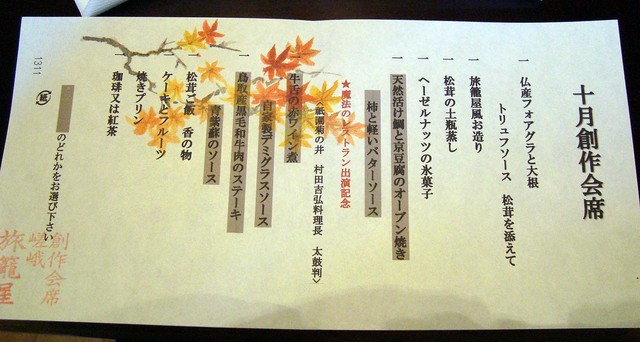 十月創作会席
一 仏産フォアグラと大根
トリュフソース 松茸を添えて
一 旅籠屋風お造り
一 松茸の土瓶蒸し
一 ヘーゼルナッツの氷菓子
一 天然活け鯛と京豆腐のオーブン焼き
柿と軽いバターソース
★魔法のレストラン出演記念
〈祇園菊の井 村田吉弘料理長 太鼓判〉
一 牛舌の赤ワイン煮
自家製デミグラスソース
一 鳥取産黒毛和牛肉のステーキ
青紫蘇のソース
一 松茸ご飯 香の物
一 ケーキとフルーツ
焼きプリン
一 珈琲又は紅茶
のどれかをお選び下さい
1311
紙
創作会席
嵯峨
旅籠屋